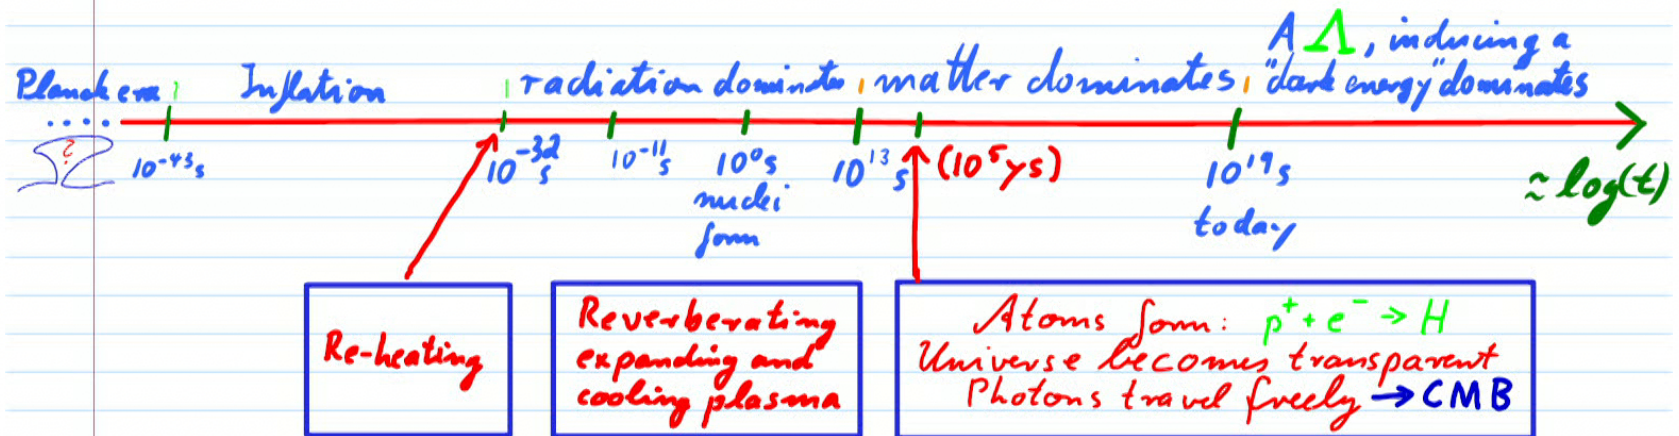 A Λ, inducing a
Planck era | Inflation | radiation dominates | matter dominates | "dark energy" dominates
?
10⁻⁴³s 10⁻³²s 10⁻¹¹s 10⁰s 10¹³s (10⁵ys) 10¹⁹s
≈ log(t)
nuclei
form
today
Re-heating
Reverberating
expanding and
cooling plasma
Atoms form: p⁺ + e⁻ → H
Universe becomes transparent
Photons travel freely → CMB